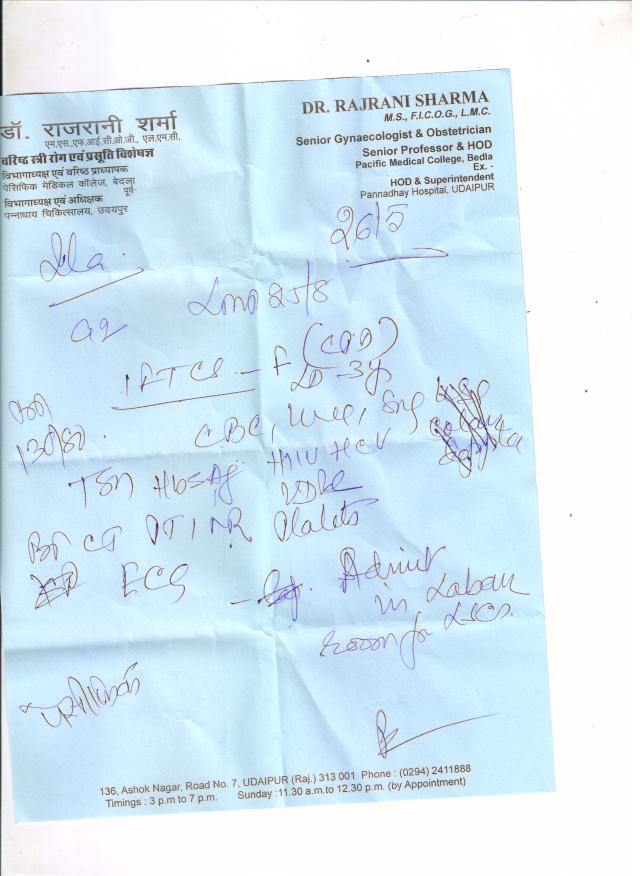 डॉ. राजरानी शर्मा
एम.एस.,एफ.आई.सी.ओ.जी., एल.एम.सी.
वरिष्ठ स्त्री रोग एवं प्रसूति विशेषज्ञ
विभागाध्यक्ष एवं वरिष्ठ प्राध्यापक
पेसिफिक मेडिकल कॉलेज, बेदला
पूर्व-
विभागाध्यक्ष एवं अधिक्षक
पन्नाधाय चिकित्सालय, उदयपुर
DR. RAJRANI SHARMA
M.S., F.I.C.O.G., L.M.C.
Senior Gynaecologist & Obstetrician
Senior Professor & HOD
Pacific Medical College, Bedla
Ex. -
HOD & Superintendent
Pannadhay Hospital, UDAIPUR
26/5
LMP 25/8
G2
130/80
CBC,
TSH HbsAg HIV HCV
VDRL
BT CT PT INR Platelets
ECG
Admit
in Labour
room for LSCS.
136, Ashok Nagar, Road No. 7, UDAIPUR (Raj.) 313 001 Phone : (0294) 2411888
Timings : 3 p.m to 7 p.m. Sunday :11.30 a.m.to 12.30 p.m. (by Appointment)